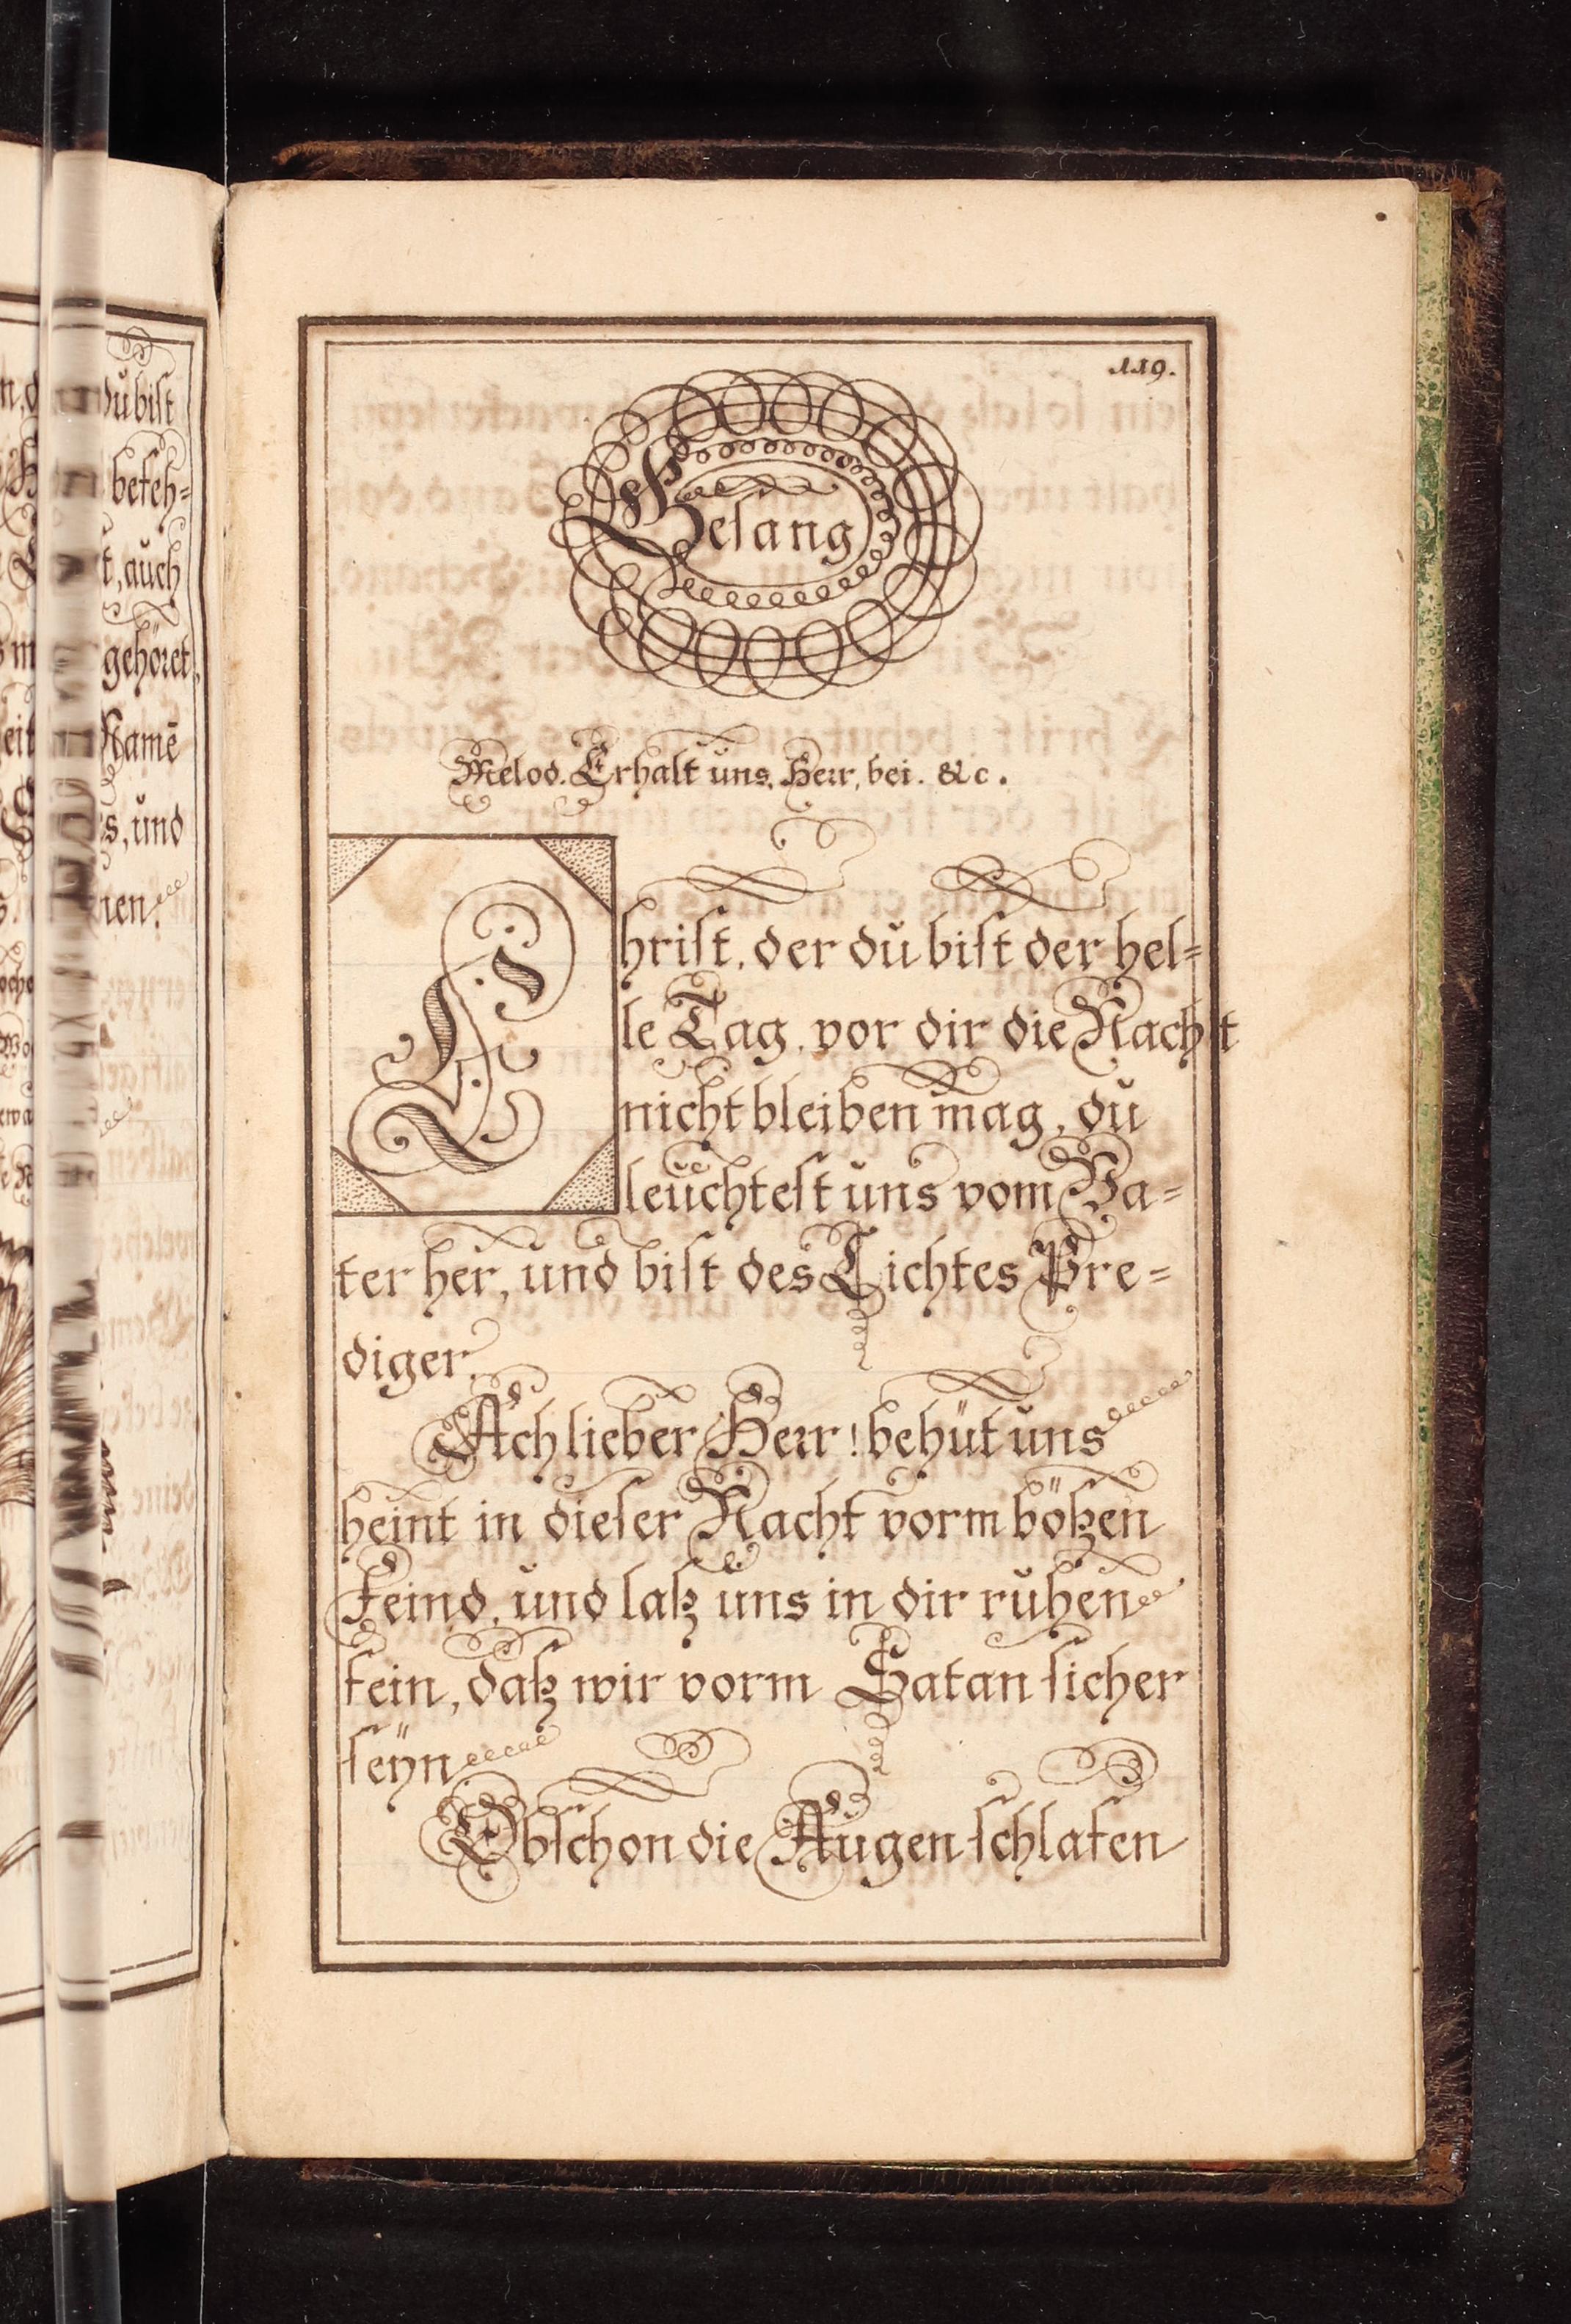 n, d du bist
befeh=
t, auch
m gehöret,
eit Namē
s, und
119.
Gesang
Melod. Erhalt uns, Herr, bei. &c.
Christ, der du bist der hel=
le Tag, vor dir die Nacht
nicht bleiben mag, du
leuchtest uns vom Va=
ter her, und bist des Lichtes Pre=
diger.
Ach lieber Herr! behüt uns
heint in dieser Nacht vorm bößen
Feind, und laß uns in dir ruhen
fein, daß wir vorm Satan sicher
seÿn
Obschon die Augen schlafen